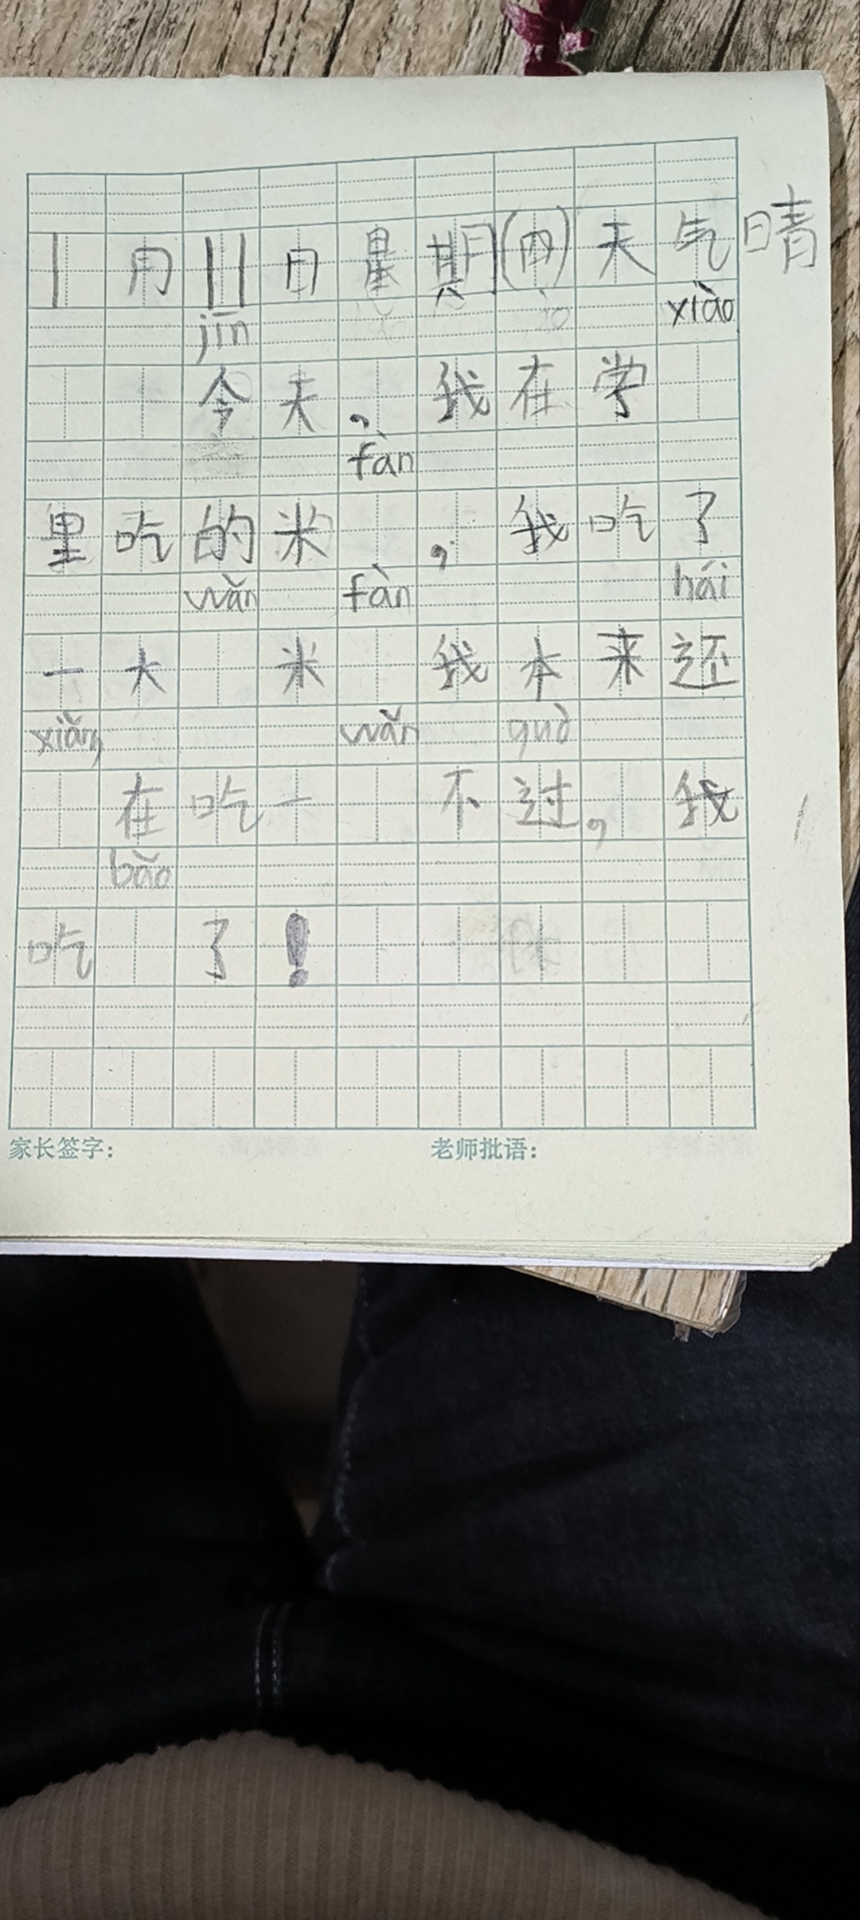 1月11日星期(四)天气晴
jīn xiào
今天,我在学
fàn
里吃的米,我吃了
wǎn fàn hái
一大米我本来还
xiǎng wǎn guò
在吃一不过,我
bǎo
吃了!
家长签字: 老师批语: